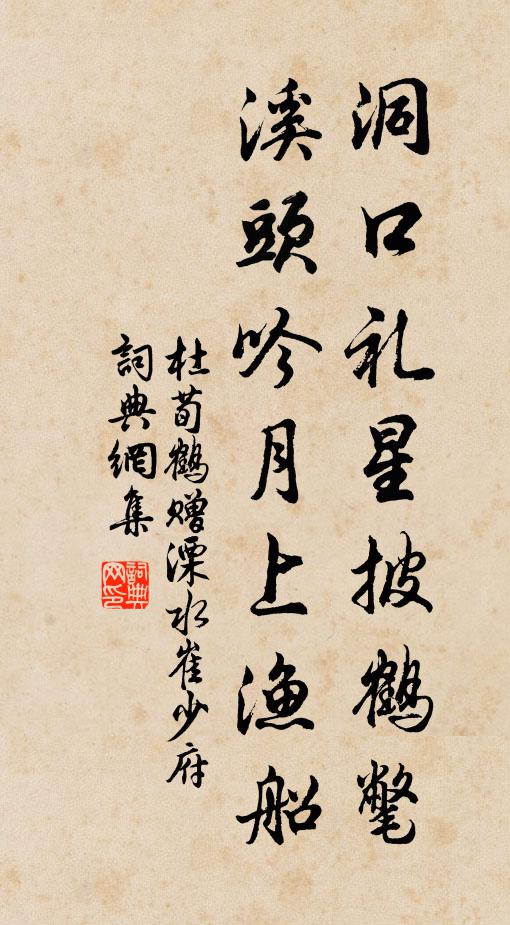 洞口礼星披鶴氅
溪頭吟月上漁船
杜荀鶴赠溧水崔少府
詞典網集
詞典网印